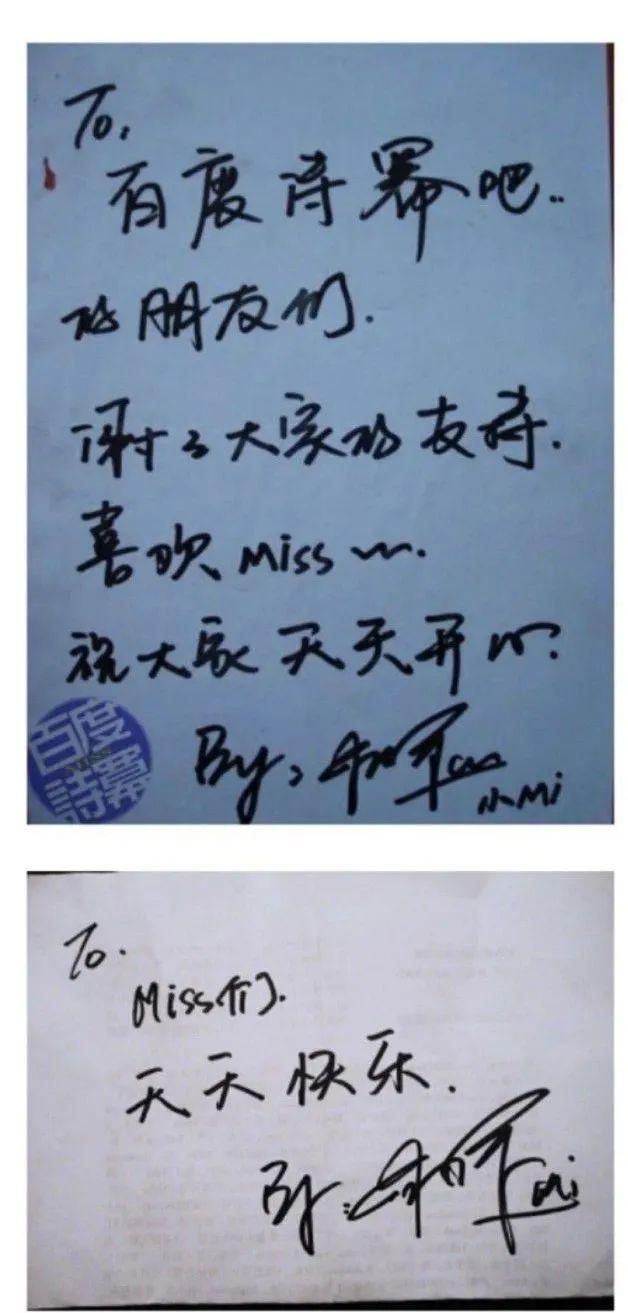 To,
百度诗幂吧..
的朋友们.
谢谢大家的支持.
喜欢 Miss ~.
祝大家天天开心.
By:
小Mi
百度诗幂
To.
Miss们.
天天快乐.
By: Mi